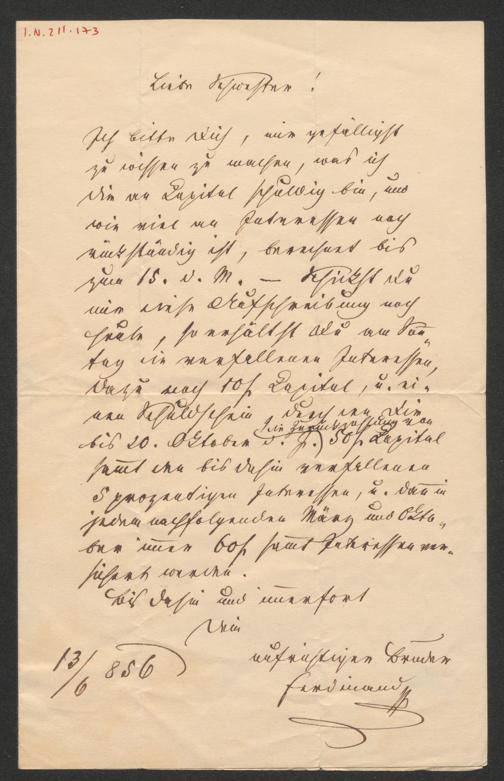 I.N. 211.173
Liebe Schwester!
Ich bitte Dich, mir gefälligst
zu wissen zu machen, was ich
Dir an Capital schuldig bin, und
wie viel an Interessen noch
rückständig ist, berechnet bis
zum 15. d. M. — Schickst Du
mir diese Aufschreibung noch
heute, so erhältst Du am Sonn-
tag die verfallenen Interessen,
dazu noch 10f Capital, u. ei-
nen Schuldschein, durch den Dir
die Zurückzahlung von
bis 20. Oktober d. J. 50f Capital
sammt den bis dahin verfallenen
5 prozentigen Interessen, u. dann in
jedem nachfolgenden März und Okto-
ber immer 60f sammt Interessen ver-
sichert werden.
Bis dahin und immerfort
Dein
aufrichtiger Bruder
Ferdinand
13/6 856